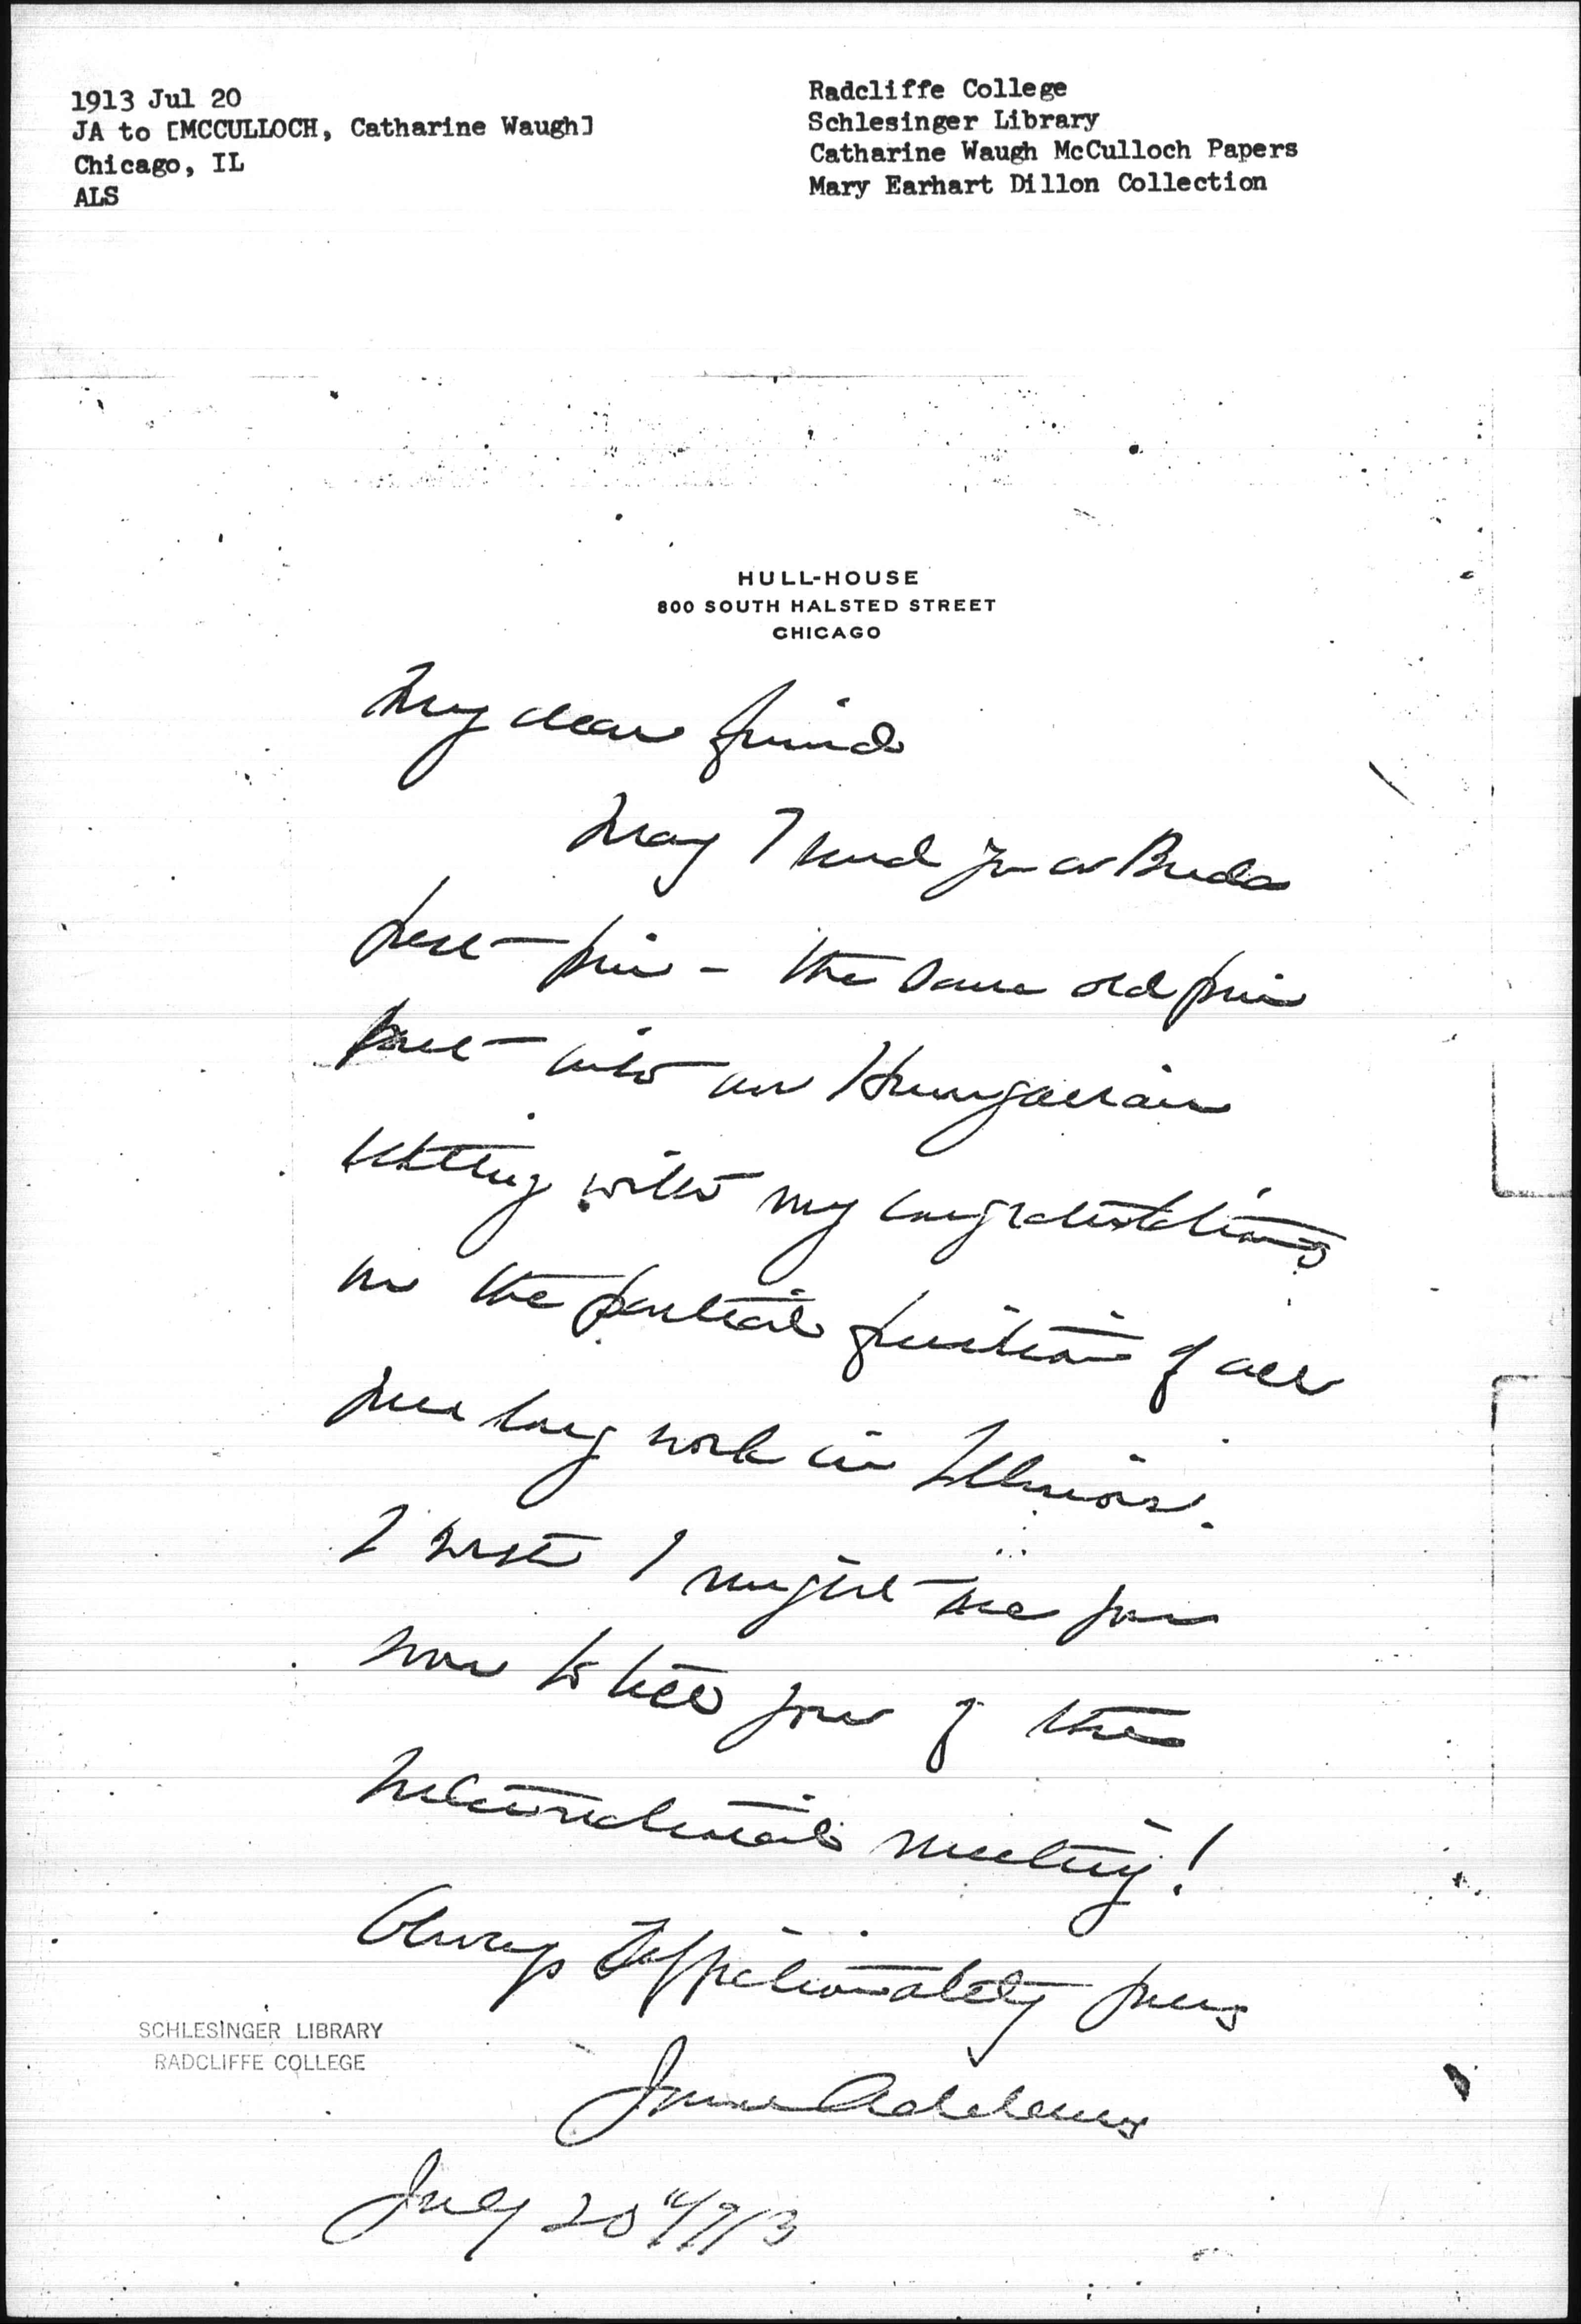 1913 Jul 20
JA to [MCCULLOCH, Catharine Waugh]
Chicago, IL
ALS
Radcliffe College
Schlesinger Library
Catharine Waugh McCulloch Papers
Mary Earhart Dillon Collection
HULL-HOUSE
800 SOUTH HALSTED STREET
CHICAGO
My dear friend
May I send you a Buda
pest pin - the same old pin
put into an Hungarian
setting with my congratulations
on the partial fruition of all
your long work in Illinois.
I wish I might see you
now to tell you of the
International meeting!
Always affectionately yours
Jane Addams
July 20" 1913
SCHLESINGER LIBRARY
RADCLIFFE COLLEGE